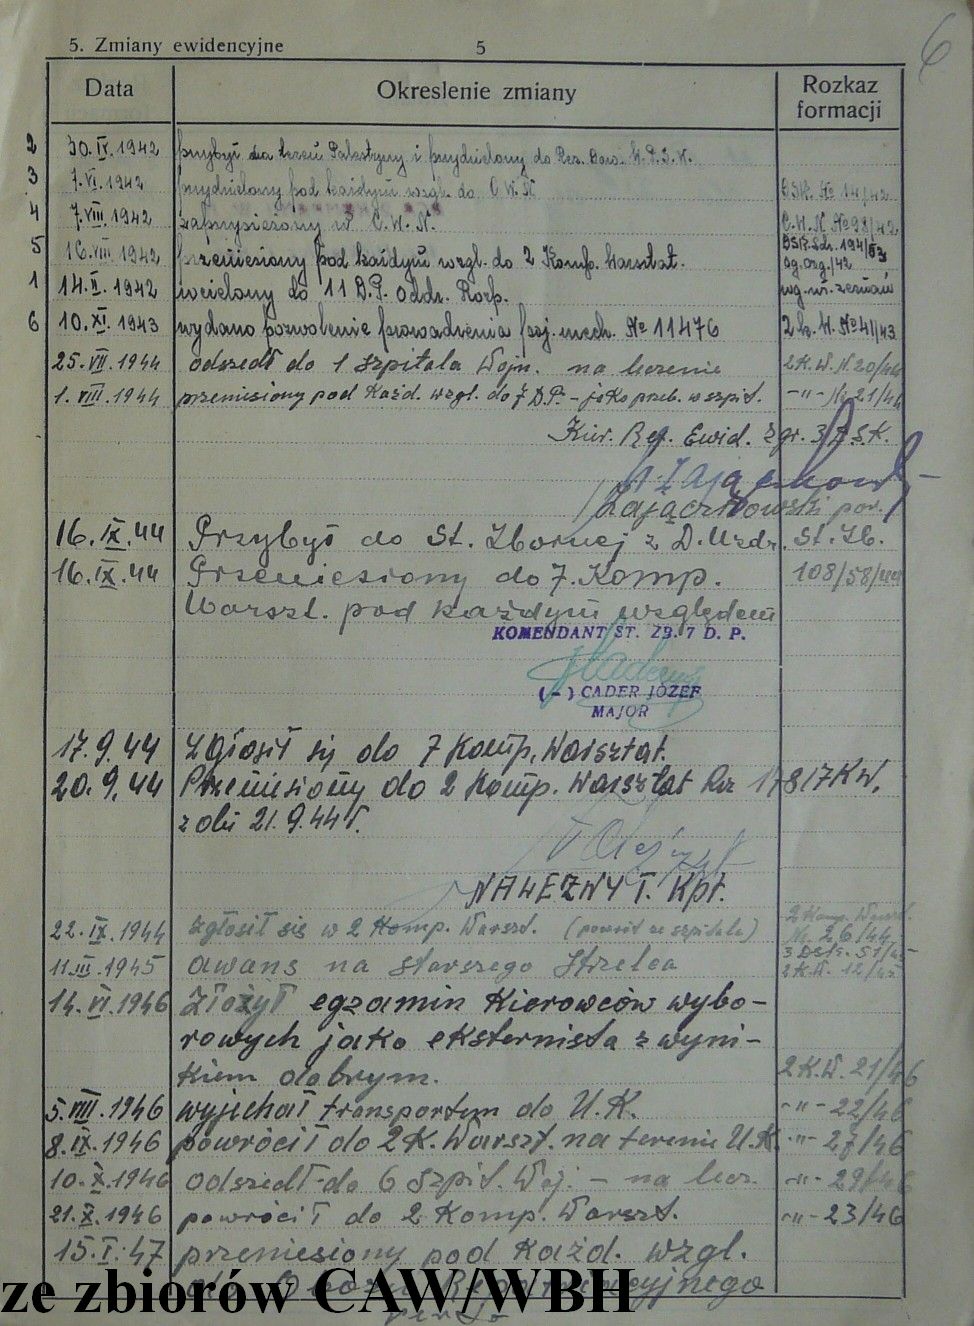 5. Zmiany ewidencyjne 5 6
Data Okreslenie zmiany Rozkaz formacji
2 30.IV.1942 przybył na teren Palestyny i przydzielony do Rez.
3 7.VI.1942 przydzielony pod każdym wzgl. do C.W.N. Nr 14/42
4 7.VIII.1942 zaprzysiężony w C.W.N. C.W.N Nº 98/42
5 16.VIII.1942 przeniesiony pod każdym wzgl. do 2 Komp. Warsztat. 194/53 Og.Org./42
1 14.II.1942 wcielony do 11 D.P. Oddz. Rozp. wg. wł. zeznań
6 10.XI.1943 wydano pozwolenie prowadzenia poj. mech. Nº 11476 2 k. W. Nº 41/43
25.VII.1944 odszedł do 1 szpitala Wojn. na leczenie 2 K.W. N. 20/44
1.VIII.1944 przenisiony pod Każd. wzgl. do 7 D.P. - jako przeb. w szpit. -"- Nr 21/44
Kier. Ref. Ewid. Zgr. 3 D.S.K.
Zajączkowski por.
16.IX.44 Przybył do St. Zbornej z D. Uzdr. St. Zb.
16.IX.44 Przeniesiony do 7. Komp. 108/58/44
Warszt. pod każdym względem
KOMENDANT ST. ZB. 7 D. P.
(-) CADER JÓZEF
MAJOR
17.9.44 Zgłosił się do 7 Komp. Warsztat.
20.9.44 Przenisiony do 2 Komp. Warsztat Rz 178 17KW.
z dn 21.9.44 r.
NAŁEZNY T. Kpt.
22.IX.1944 zgłosił się w 2 Komp. Warszt. (powrót ze szpitala) 2 Komp. Warszt. Nr. 26/44
11.III.1945 awans na starszego strzelca 51/45 2 K.W. 12/45
14.VI.1946 Złożył egzamin Kierowców wybo-
rowych jako eksternista z wyni-
kiem dobrym. 2 K.W. 21/46
5.VIII.1946 wyjechał transportem do U.K. -"- 22/46
8.IX.1946 powrócił do 2 K. Warszt. na terenie U.K. -"- 27/46
10.X.1946 odszedł do 6 Szpit. Woj. - na lecz. -"- 29/46
21.X.1946 powrócił do 2 Komp. Warszt. -"- 23/46
15.I.47 przeniesiony pod Każd. wzgl.
do Obozu Repatriacyjnego
verte
ze zbiorów CAW/WBH